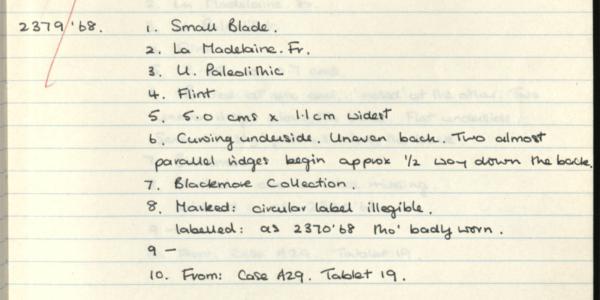 2379/'68. 1. Small Blade.
2. La Madelaine. Fr.
3. U. Paleolithic
4. Flint
5. 5.0 cms x 1.1 cm widest
6. Curving underside. Uneven back. Two almost
parallel ridges begin approx 1/2 way down the back.
7. Blackmore Collection.
8. Marked: circular label illegible.
labelled: as 2370'68 tho' badly worn.
9 -
10. From: Case A29. Tablet 19.